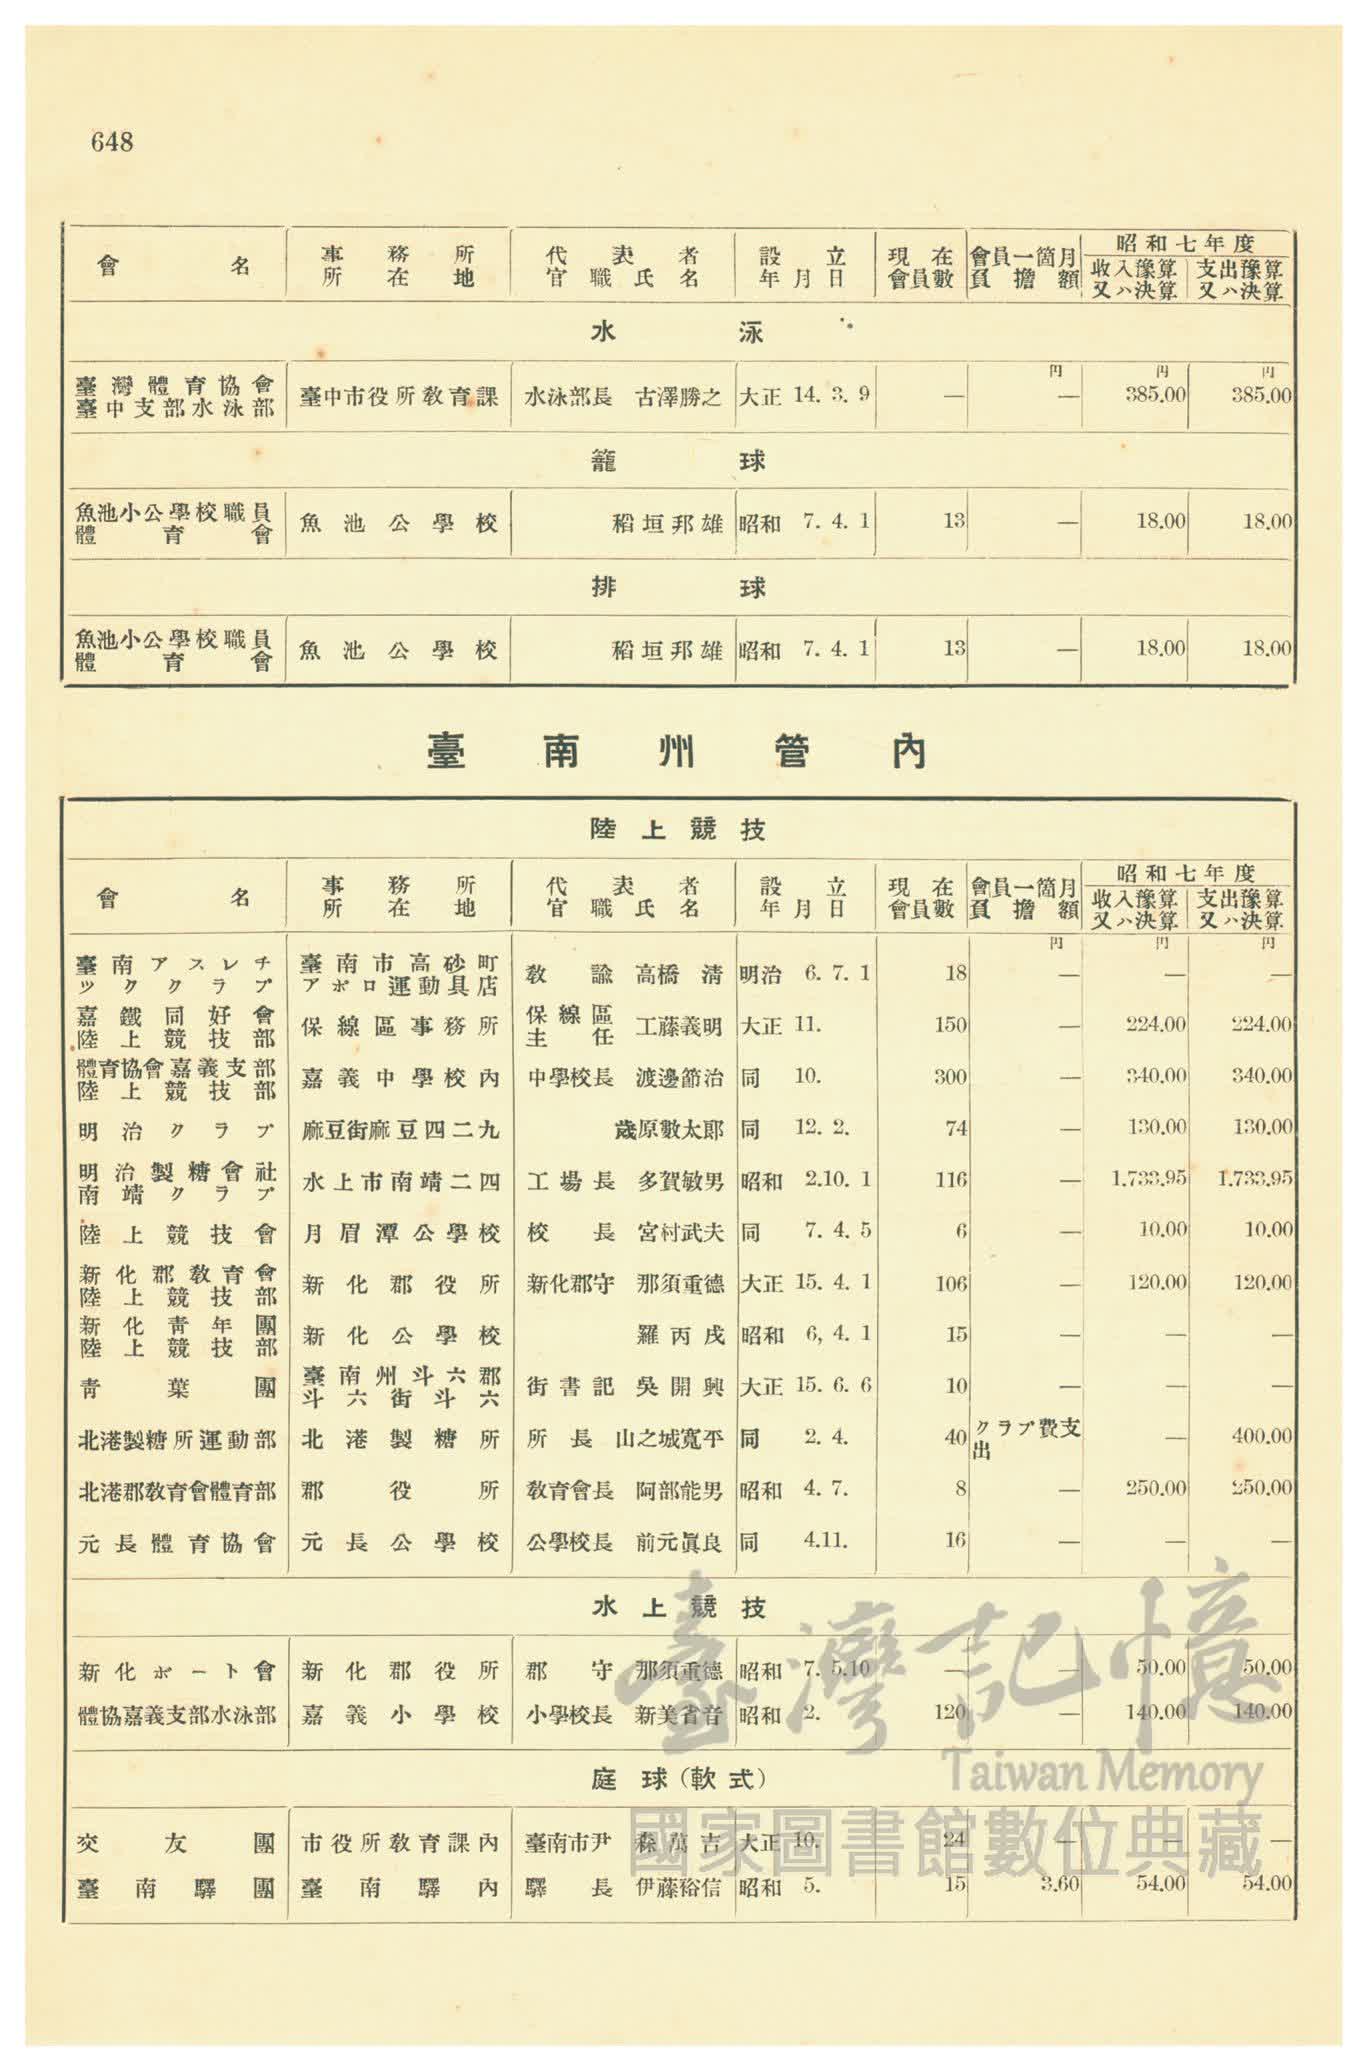 648
會名 事務所所在地 代表者官職氏名 設立年月日 現在會員數 會員一箇月負擔額 昭和七年度 收入豫算又ハ決算 支出豫算又ハ決算
水泳
円 円 円
臺灣體育協會臺中支部水泳部 臺中市役所敎育課 水泳部長 古澤勝之 大正 14. 3. 9 — — 385.00 385.00
籠球
魚池小公學校職員體育會 魚池公學校 稻垣邦雄 昭和 7. 4. 1 13 — 18.00 18.00
排球
魚池小公學校職員體育會 魚池公學校 稻垣邦雄 昭和 7. 4. 1 13 — 18.00 18.00
臺南州管內
陸上競技
會名 事務所所在地 代表者官職氏名 設立年月日 現在會員數 會員一箇月負擔額 昭和七年度 收入豫算又ハ決算 支出豫算又ハ決算
円 円 円
臺南アスレチツククラブ 臺南市高砂町アポロ運動具店 敎諭 高橋淸 明治 6. 7. 1 18 — — —
嘉鐵同好會陸上競技部 保線區事務所 保線區主任 工藤義明 大正 11. 150 — 224.00 224.00
體育協會嘉義支部陸上競技部 嘉義中學校內 中學校長 渡邊節治 同 10. 300 — 340.00 340.00
明治クラブ 麻豆街麻豆四二九 歲原數太郞 同 12. 2. 74 — 130.00 130.00
明治製糖會社南靖クラブ 水上市南靖二四 工場長 多賀敏男 昭和 2.10. 1 116 — 1.733.95 1.733.95
陸上競技會 月眉潭公學校 校長 宮村武夫 同 7. 4. 5 6 — 10.00 10.00
新化郡敎育會陸上競技部 新化郡役所 新化郡守 那須重德 大正 15. 4. 1 106 — 120.00 120.00
新化靑年團陸上競技部 新化公學校 羅丙戌 昭和 6, 4. 1 15 — — —
靑葉團 臺南州斗六郡斗六街斗六 街書記 吳開興 大正 15. 6. 6 10 — — —
北港製糖所運動部 北港製糖所 所長 山之城寬平 同 2. 4. 40 クラブ費支出 — 400.00
北港郡敎育會體育部 郡役所 敎育會長 阿部能男 昭和 4. 7. 8 — 250.00 250.00
元長體育協會 元長公學校 公學校長 前元眞良 同 4.11. 16 — — —
水上競技
新化ボート會 新化郡役所 郡守 那須重德 昭和 7. 5.10 — — 50.00 50.00
體協嘉義支部水泳部 嘉義小學校 小學校長 新美省音 昭和 2. 120 — 140.00 140.00
庭球(軟式)
交友團 市役所敎育課內 臺南市尹 森萬吉 大正 10. 24 — — —
臺南驛團 臺南驛內 驛長 伊藤裕信 昭和 5. 15 3.60 54.00 54.00
臺灣記憶
Taiwan Memory
國家圖書館數位典藏